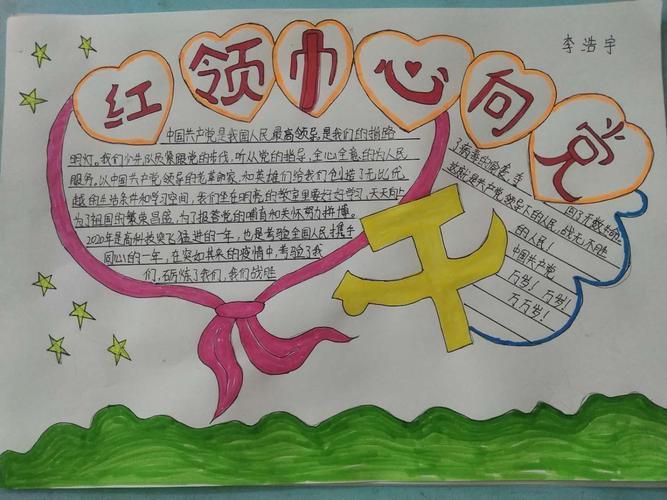 红领巾心向党
李浩宇
中国共产党是我国人民最高领导,是我们的指路
明灯。我们少先队员紧跟党的步伐,听从党的指导,全心全意的为人民
服务。以中国共产党领导的先革命家,和英雄们给我们创造了无比优
越的生活条件和学习空间,我们坐在明亮的教室里要好好学习,天天向上
为了祖国的繁荣昌盛,为了报答党的哺育和关怀努力拼搏。
2020年是高科技突飞猛进的一年,也是考验全国人民携手
同心的一年,在突如其来的疫情中,考验了我
们,砺炼了我们,我们战胜
了病毒的
回了无数生命
这就是共产党领导下的人民,战无不胜
的人民!
中国共产党
万岁!万岁!
万万岁!